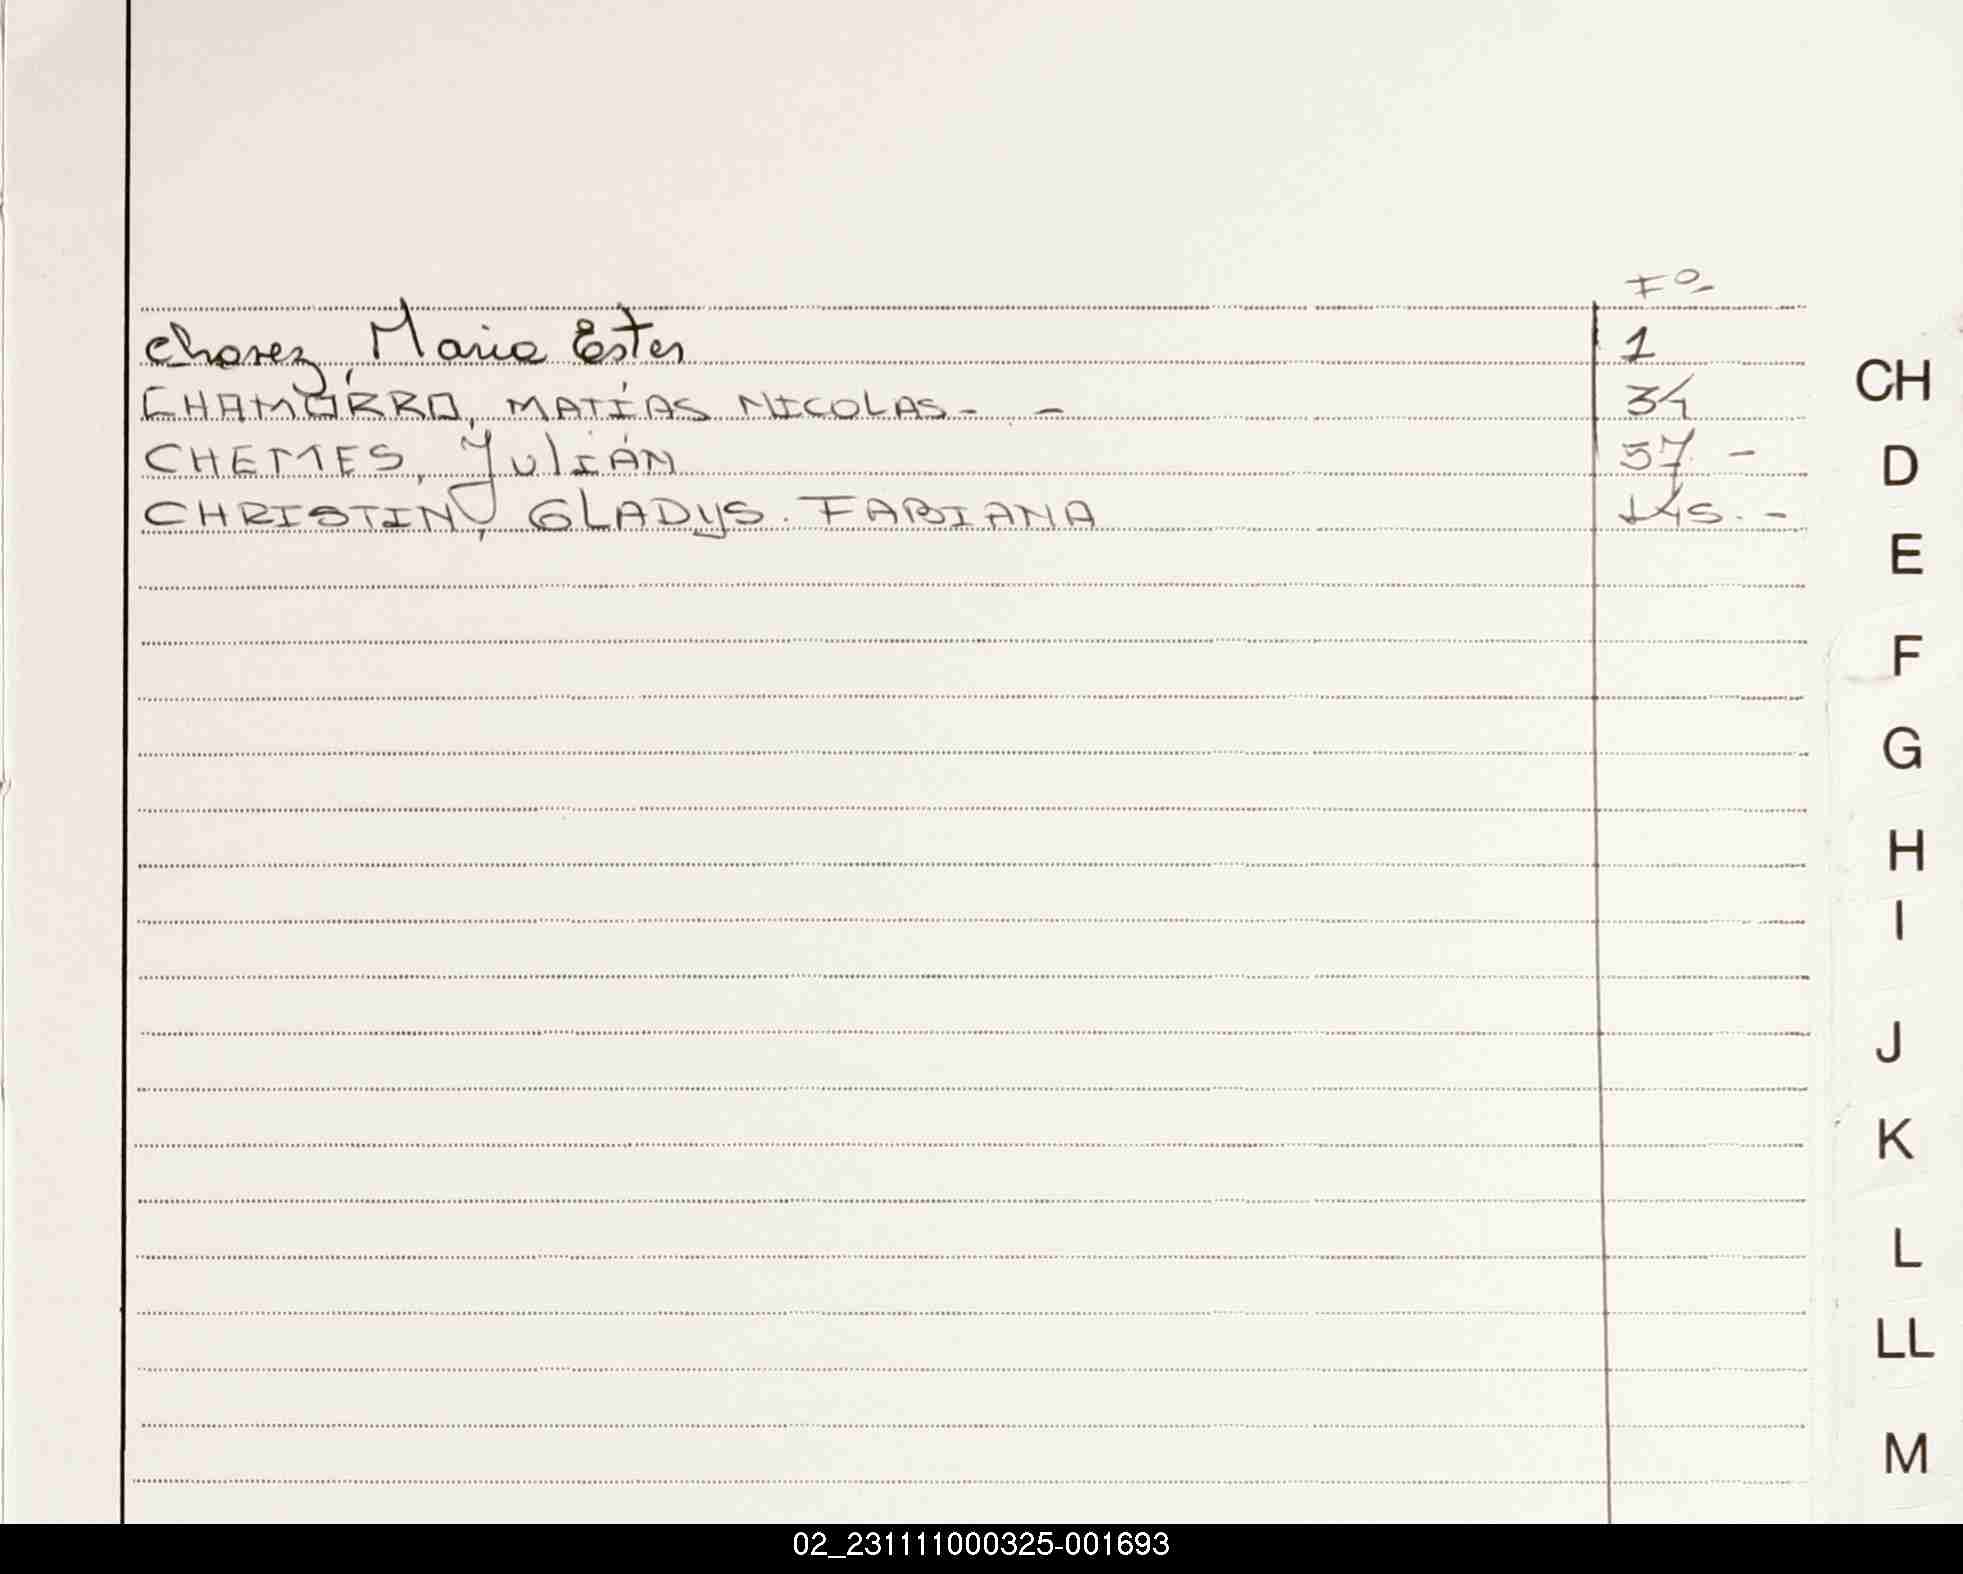 Fº
Chavez, Maria Ester 1
CHAMORRO, MATÍAS NICOLAS- - 34
CHEMES, JuliÁN 57 -
CHRISTIN, GLADyS. FABIANA 145.-
CH
D
E
F
G
H
I
J
K
L
LL
M
02_231111000325-001693